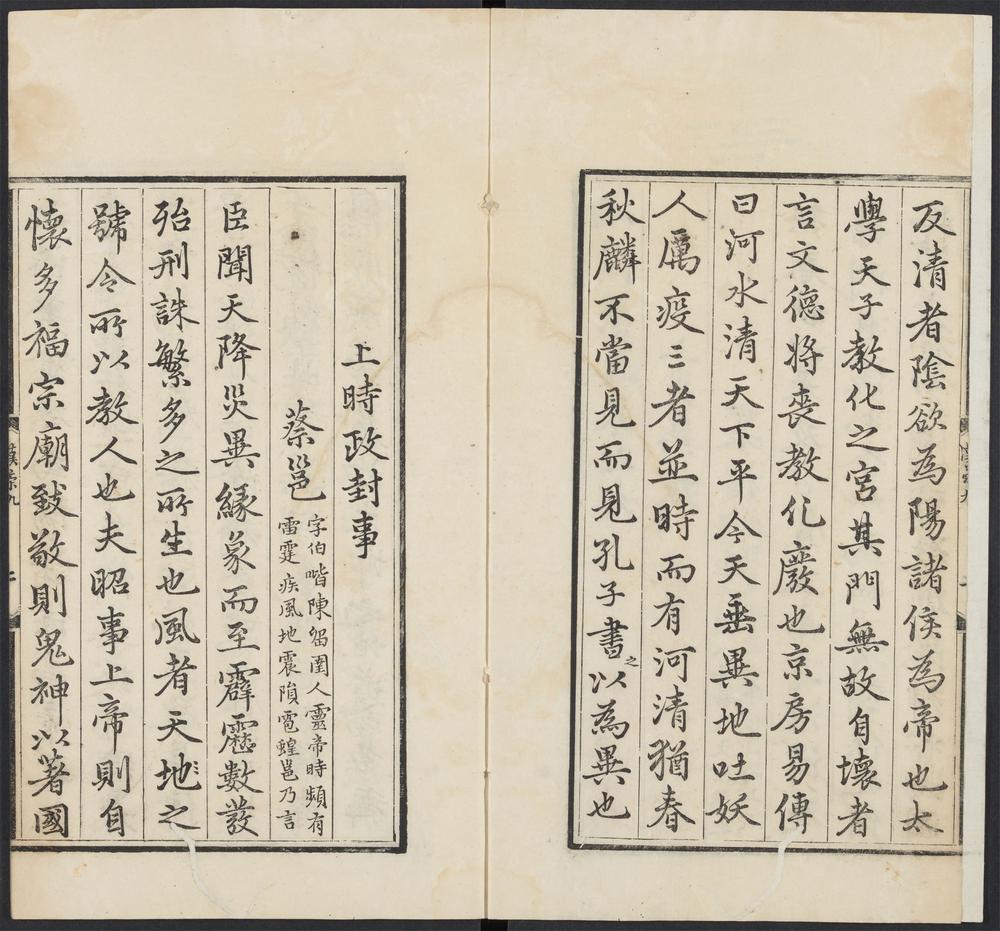 反清者陰欲為陽諸侯為帝也太
學天子教化之宮其門無故自壞者
言文德將喪教化廢也京房易傳
曰河水清天下平今天垂異地吐妖
人厲疫三者並時而有河清猶春
秋麟不當見而見孔子書之以為異也
上時政封事
蔡邕
字伯喈陳留圉人靈帝時頻有
雷霆疾風地震隕雹蝗邕乃言
臣聞天降災異緣象而至霹靂數發
殆刑誅繁多之所生也風者天地之
號令所以教人也夫昭事上帝則自
懷多福宗廟致敬則鬼神以著國